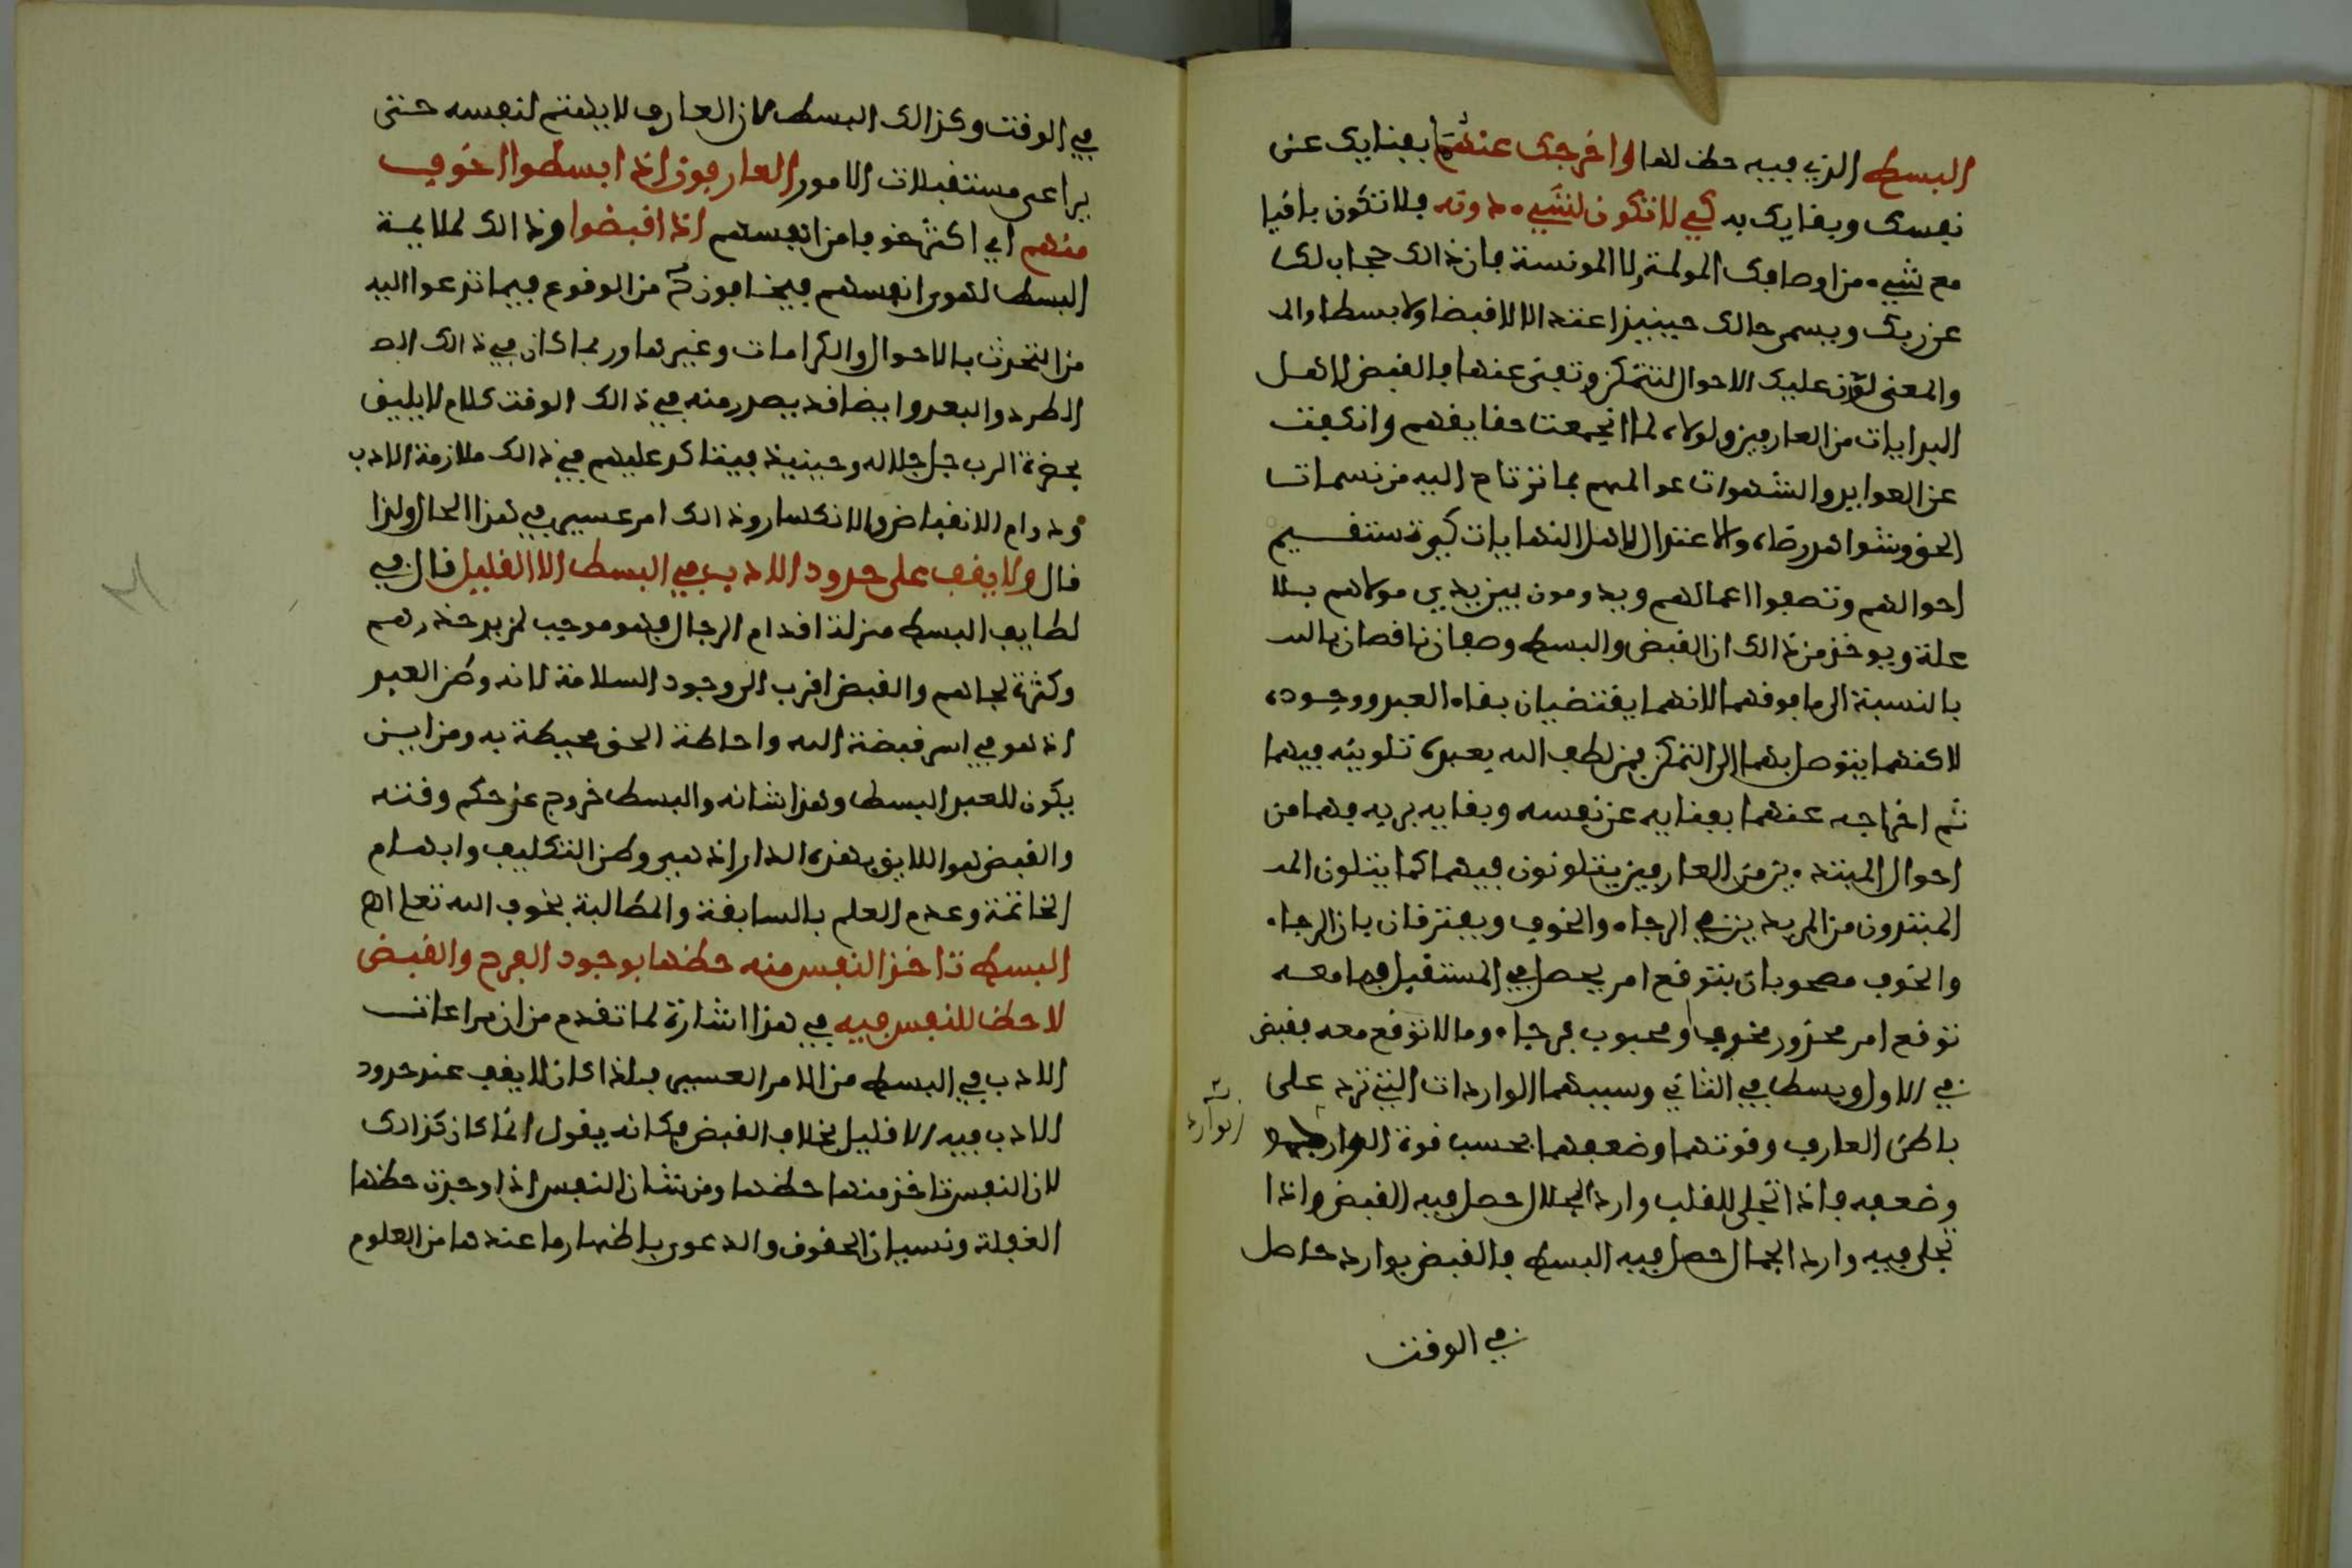 البسط الذي فيه حظ لها واخرجك عنهما بفنايك عن
نفسك وبقايك به كي لا تكون لشيء دونه فلا تكون باقيا
مع شيء من اوصافك المولمة ولا المونسة فان ذالك حجاب لك
عن ربك ويسمى حالك حينيذ اعتدالا لا قبضا ولا بسطا
والمعنى لون عليك الاحوال لتتمكن وتفنى عنها فالقبض لاهل
البدايات من العارفين ولولاه لما انجمعت حقايقهم وانكفت
عن العوايد والشهوات عوالمهم بما ترتاح اليه من نسمات
الحق وشواهد رضاه والاعتدال لاهل النهايات كي تستقيم
احوالهم وتصفوا اعمالهم ويدومون بين يدي مولاهم بلا
علة ويوخذ من ذالك ان القبض والبسط وصفان ناقصان
بالنسبة الى ما فوقهما لانهما يقتضيان بقاء العبد ووجوده
لاكنهما يتوصل بهما الى التمكن فمن لطف الله بعبده تلوينه فيهما
ثم اخراجه عنهما بفنايه عن نفسه وبقايه بربه فهما من
احوال المبتدءين من العارفين يتلونون فيهما كما يتلون
المبتدون من المريدين في الرجاء والخوف ويفترقان بان الرجاء
والخوف مصحوبان بتوقع امر يحصل في المستقبل فما معه
توقع امر محذور فخوف او محبوب فرجاء وما لا توقع معه فقبض
في الاول وبسط في الثاني وسببهما الواردات التي ترد على
باطن العارف وقوتهما وضعفهما بحسب قوة الوارد
وضعفه فاذا تجلى للقلب وارد الجلال حصل فيه القبض واذا
تجلى فيه وارد الجمال حصل فيه البسط فالقبض بوارد حاصل
في الوقت
في الوقت وكذالك البسط لان العارف لا يلتفت لنفسه حتى
يراعى مستقبلات الامور العارفون اذا ابسطوا اخوف
منهم اي اكثر خوفا من انفسهم اذا اقبضوا وذالك لملايمة
البسط لهوى انفسهم فيخافون من الوقوع فيما تدعوا اليه
من التحدث بالاحوال والكرامات وغيرها وربما كان في ذالك
الطرد والبعد وايضا قد يصدر منه في ذالك الوقت كلام لا يليق
بحضرة الرب جل جلاله وحينيذ فيتاكد عليهم في ذالك ملازمة الادب
ودوام الانقباض والانكسار وذالك امر عسير في هذا الحال ولذا
قال ولا يقف على حدود الادب في البسط الا القليل قال في
لطايف البسط مزلة اقدام الرجال فهو موجب لمزيد حذرهم
وكثرة لجاهم والقبض اقرب الى وجود السلامة لانه وطن العبد
اذ هو في اسر قبضة الله واحاطة الحق محيطة به ومن اين
يكون للعبد البسط وهذا شانه والبسط خروج عن حكم وقته
والقبض هو اللايق بهذه الدار اذ هي وطن التكليف وابهام
الخاتمة وعدم العلم بالسابقة والمطالبة بحقوق الله تعالى اه
البسط تاخذ النفس منه حظها بوجود الفرح والقبض
لا حظ للنفس فيه في هذا اشارة لما تقدم من ان مراعات
الادب في البسط من الامر العسير فلذا كان لا يقف عند حدود
الادب فيه الا قليل بخلاف القبض فكانه يقول انما كان كذالك
لان النفس تاخذ منها حظها ومن شان النفس اذا وجدت حظها
الغفلة ونسيان الحقوق والدعوى باظهار ما عندها من العلوم